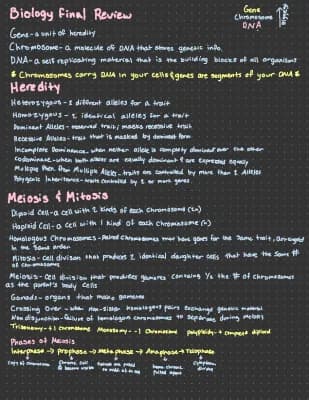 Biology Final Review
Gene
Chromosome
DNA
Gene - a unit of heredity
Chromosome - a molecule of DNA that stores genetic info.
DNA - a self replicating material that is the building blocks of all organisms
* Chromosomes carry DNA in your cells & genes are segments of your DNA *
Heredity
Heterozygous - 2 different alleles for a trait
Homozygous - 2 identical alleles for a trait
Dominant Alleles - observed trait; masks recessive trait
Recessive Alleles - trait that is masked by dominant form
Incomplete Dominance - when neither allele is completely dominant over the other
Codominance - when both alleles are equally dominant & are expressed equally
Multiple Alleles - traits are controlled by more than 2 Alleles
Polygenic Inheritance - traits controlled by 2 or more genes
Meiosis & Mitosis
Diploid Cell - a cell with 2 kinds of each Chromosome (2n)
Haploid Cell - a cell with 1 kind of each Chromosome (n)
Homologous Chromosomes - paired Chromosomes that have genes for the same trait, arranged
in the same order
Mitosis - Cell division that produces 2 identical daughter cells that have the same #
of chromosomes
Meiosis - Cell division that produces gametes contains 1/2 the # of chromosomes
as the parent's body cells
Gonads - organs that making gametes
Crossing Over - when non-sister homologous pairs exchange genetic material
Nondisjunction - failure of homologous chromosomes to separate during meiosis
Trisomy - +1 chromosome Monosomy - -1 Chromosome polyploidy - + complete diploid
Phases of Meiosis
Interphase → prophase → metaphase → Anaphase → Telophase